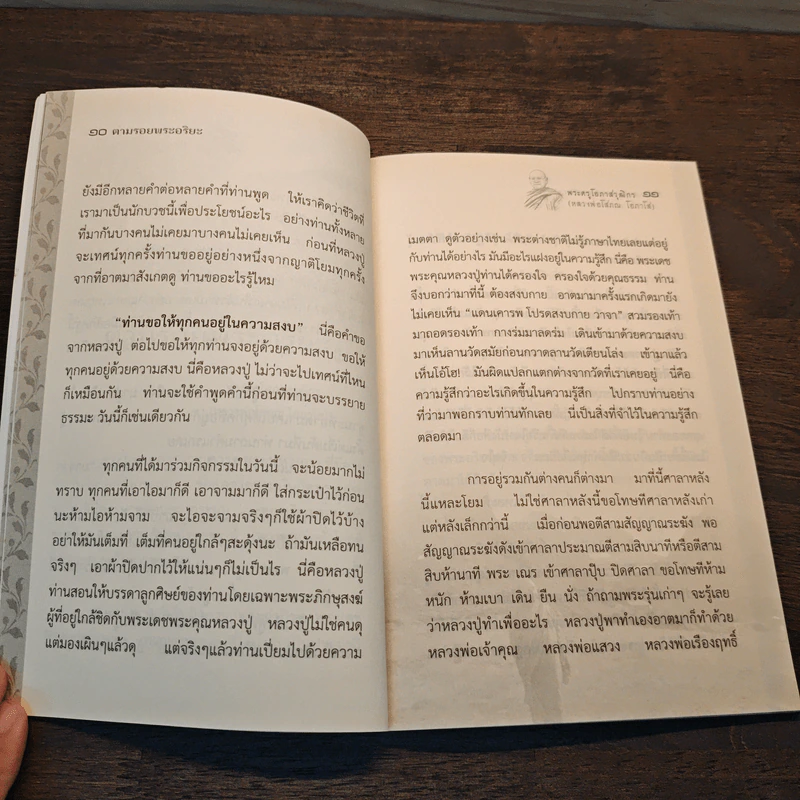 ๑๐ ตามรอยพระอริยะ
ยังมีอีกหลายคำต่อหลายคำที่ท่านพูด ให้เราคิดว่าชีวิตที่
เรามาเป็นนักบวชนี้เพื่อประโยชน์อะไร อย่างท่านทั้งหลาย
ที่มากันบางคนไม่เคยมาบางคนไม่เคยเห็น ก่อนที่หลวงปู่
จะเทศน์ทุกครั้งท่านขออยู่อย่างหนึ่งจากญาติโยมทุกครั้ง
จากที่อาตมาสังเกตดู ท่านขออะไรรู้ไหม
“ท่านขอให้ทุกคนอยู่ในความสงบ” นี่คือคำขอ
จากหลวงปู่ ต่อไปขอให้ทุกท่านจงอยู่ด้วยความสงบ ขอให้
ทุกคนอยู่ด้วยความสงบ นี่คือหลวงปู่ ไม่ว่าจะไปเทศน์ที่ไหน
ก็เหมือนกัน ท่านจะใช้คำพูดคำนี้ก่อนที่ท่านจะบรรยาย
ธรรมะ วันนี้ก็เช่นเดียวกัน
ทุกคนที่ได้มาร่วมกิจกรรมในวันนี้ จะน้อยมากไม่
ทราบ ทุกคนที่เอาไอมาก็ดี เอาจามมาก็ดี ใส่กระเป๋าไว้ก่อน
นะห้ามไอห้ามจาม จะไอจะจามจริงๆก็ใช้ผ้าปิดไว้บ้าง
อย่าให้มันเต็มที่ เต็มที่คนอยู่ใกล้ๆสะดุ้งนะ ถ้ามันเหลือทน
จริงๆ เอาผ้าปิดปากไว้ให้แน่นๆก็ไม่เป็นไร นี่คือหลวงปู่
ท่านสอนให้บรรดาลูกศิษย์ของท่านโดยเฉพาะพระภิกษุสงฆ์
ผู้ที่อยู่ใกล้ชิดกับพระเดชพระคุณหลวงปู่ หลวงปู่ไม่ใช่คนดุ
แต่มองเผินๆแล้วดุ แต่จริงๆแล้วท่านเปี่ยมไปด้วยความ
พระครูโอภาสวุฒิกร ๑๑
(หลวงพ่อโสภณ โอภาโส)
เมตตา ดูตัวอย่างเช่น พระต่างชาติไม่รู้ภาษาไทยเลยแต่อยู่
กับท่านได้อย่างไร มันมีอะไรแฝงอยู่ในความรู้สึก นี่คือ พระเดช
พระคุณหลวงปู่ท่านได้ครองใจ ครองใจด้วยคุณธรรม ท่าน
จึงบอกว่ามาที่นี้ ต้องสงบกาย อาตมามาครั้งแรกเกิดมายัง
ไม่เคยเห็น “แดนเคารพ โปรดสงบกาย วาจา” สวมรองเท้า
มาถอดรองเท้า กางร่มมาลดร่ม เดินเข้ามาด้วยความสงบ
มาเห็นลานวัดสมัยก่อนกวาดลานวัดเตียนโล่ง เข้ามาแล้ว
เห็นโอ้โฮ! มันผิดแปลกแตกต่างจากวัดที่เราเคยอยู่ นี่คือ
ความรู้สึกว่าอะไรเกิดขึ้นในความรู้สึก ไปกราบท่านอย่าง
ที่ว่ามาพอกราบท่านทักเลย นี่เป็นสิ่งที่จำไว้ในความรู้สึก
ตลอดมา
การอยู่รวมกันต่างคนก็ต่างมา มาที่นี้ศาลาหลัง
นี้แหละโยม ไม่ใช่ศาลาหลังนี้ขอโทษทีศาลาหลังเก่า
แต่หลังเล็กกว่านี้ เมื่อก่อนพอตีสามสัญญาณระฆัง พอ
สัญญาณระฆังดังเข้าศาลาประมาณตีสามสิบนาทีหรือตีสาม
สิบห้านาที พระ เณร เข้าศาลาปุ๊บ ปิดศาลา ขอโทษทีห้าม
หนัก ห้ามเบา เดิน ยืน นั่ง ถ้าถามพระรุ่นเก่าๆ จะรู้เลย
ว่าหลวงปู่ทำเพื่ออะไร หลวงปู่พาทำเองอาตมาก็ทำด้วย
หลวงพ่อเจ้าคุณ หลวงพ่อแสวง หลวงพ่อเรืองฤทธิ์